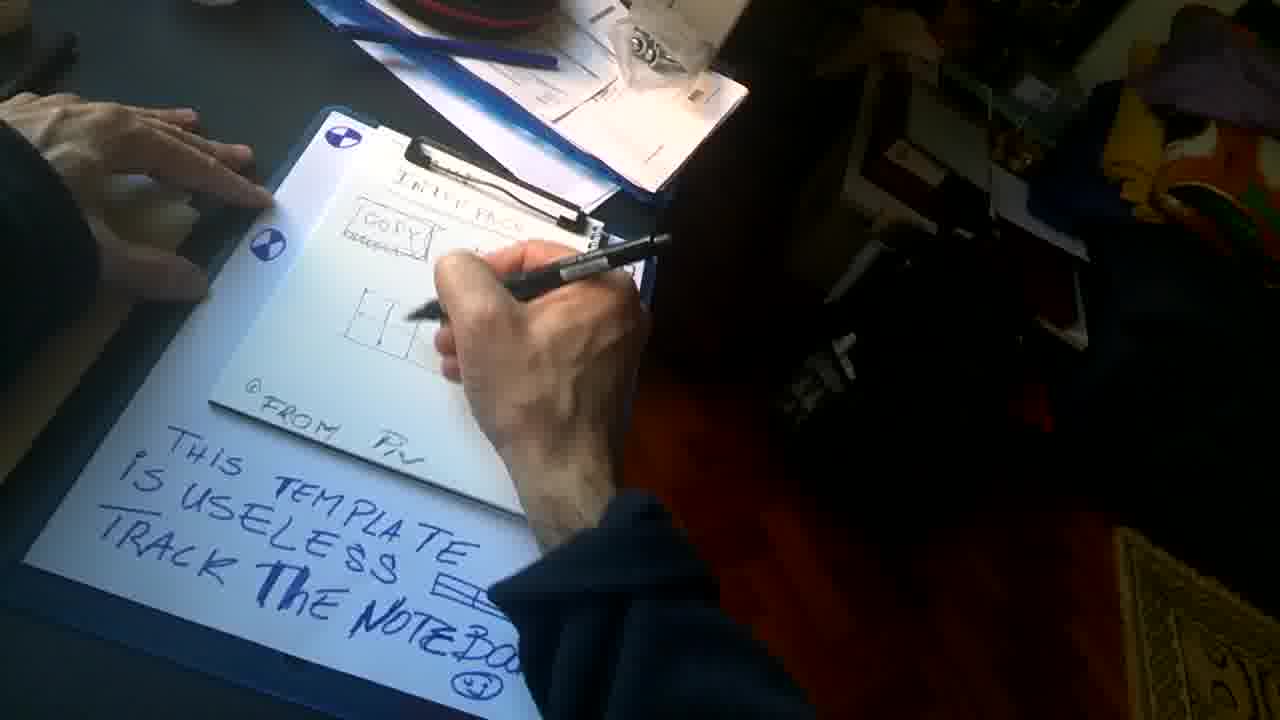 INTERFACE
COPY
@ FROM
THIS TEMPLATE
iS USELESS
TRACK THE NOTEBOO